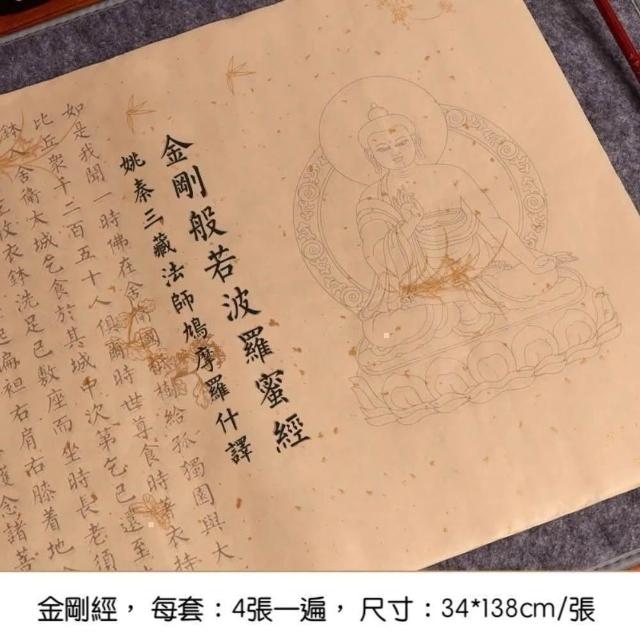 金剛般若波羅蜜經
姚秦三藏法師鳩摩羅什譯
如是我聞一時佛在舍國樹給孤獨園與大
比丘衆十二百五十人俱爾時世尊食時著衣持
鉢舍衛大城乞食於其城中次第乞已還至
收衣鉢洗足已敷座而坐時長老須
起偏袒右肩右膝着地
護念諸菩
金剛經，每套：4張一遍，尺寸：34*138cm/張